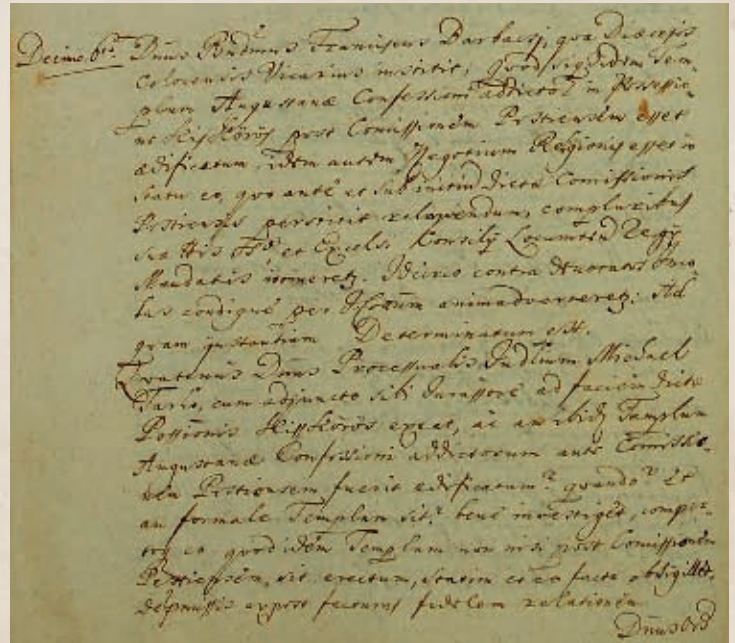 Decimo 6to Dnus Rndmus Franciscus Barbacsj, qua Diœcesis
Colocensis Vicarius institit; quod siquidem Tem-
plum Augustanæ Confessioni addictorũ in Possessio-
ne KisKőrös post Comissionem Pestiensem esset
ædificatum, idem autem Negotium Religionis esset in
Statu eo, quo ante et sub initiũ dictæ Comissionis
Pestiensis perstitit relinquendum, compluribus
Suæ Mttis et Excelsi Consilÿ Locumten Regÿ
Mandatis
condigne per animadverteretz: Ad
quam instantiam Determinatum est.
Quatenus Dnus Processualis Judlium Michael
cum adjuncto sibi Jurassore ad faciem dictæ
Possionis KisKőrös exeat, ac an ibidẽ Templum
Augustanæ Confessioni addictorum ante Comissio-
nem Pestiensem fuerit ædificatum? quando? Et
an formale Templum sit? bene investiget, comper-
to eo quod idem Templum non nisi post Comissionem
Pestiensem, sit erectum, statim et in facto obsigillet,
depromissis expost facturus fidelem relationem
Dnus Ord